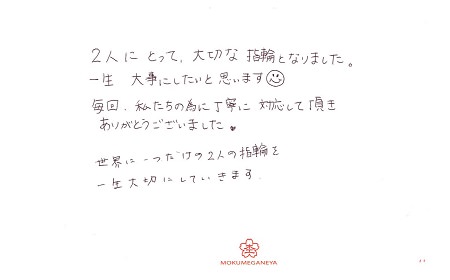 2人にとって、大切な指輪となりました。
一生 大事にしたいと思います☺
毎回、私たちの為に丁寧に対応して頂き
ありがとうございました。
世界に一つだけの2人の指輪を
一生大切にしていきます.
MOKUMEGANEYA